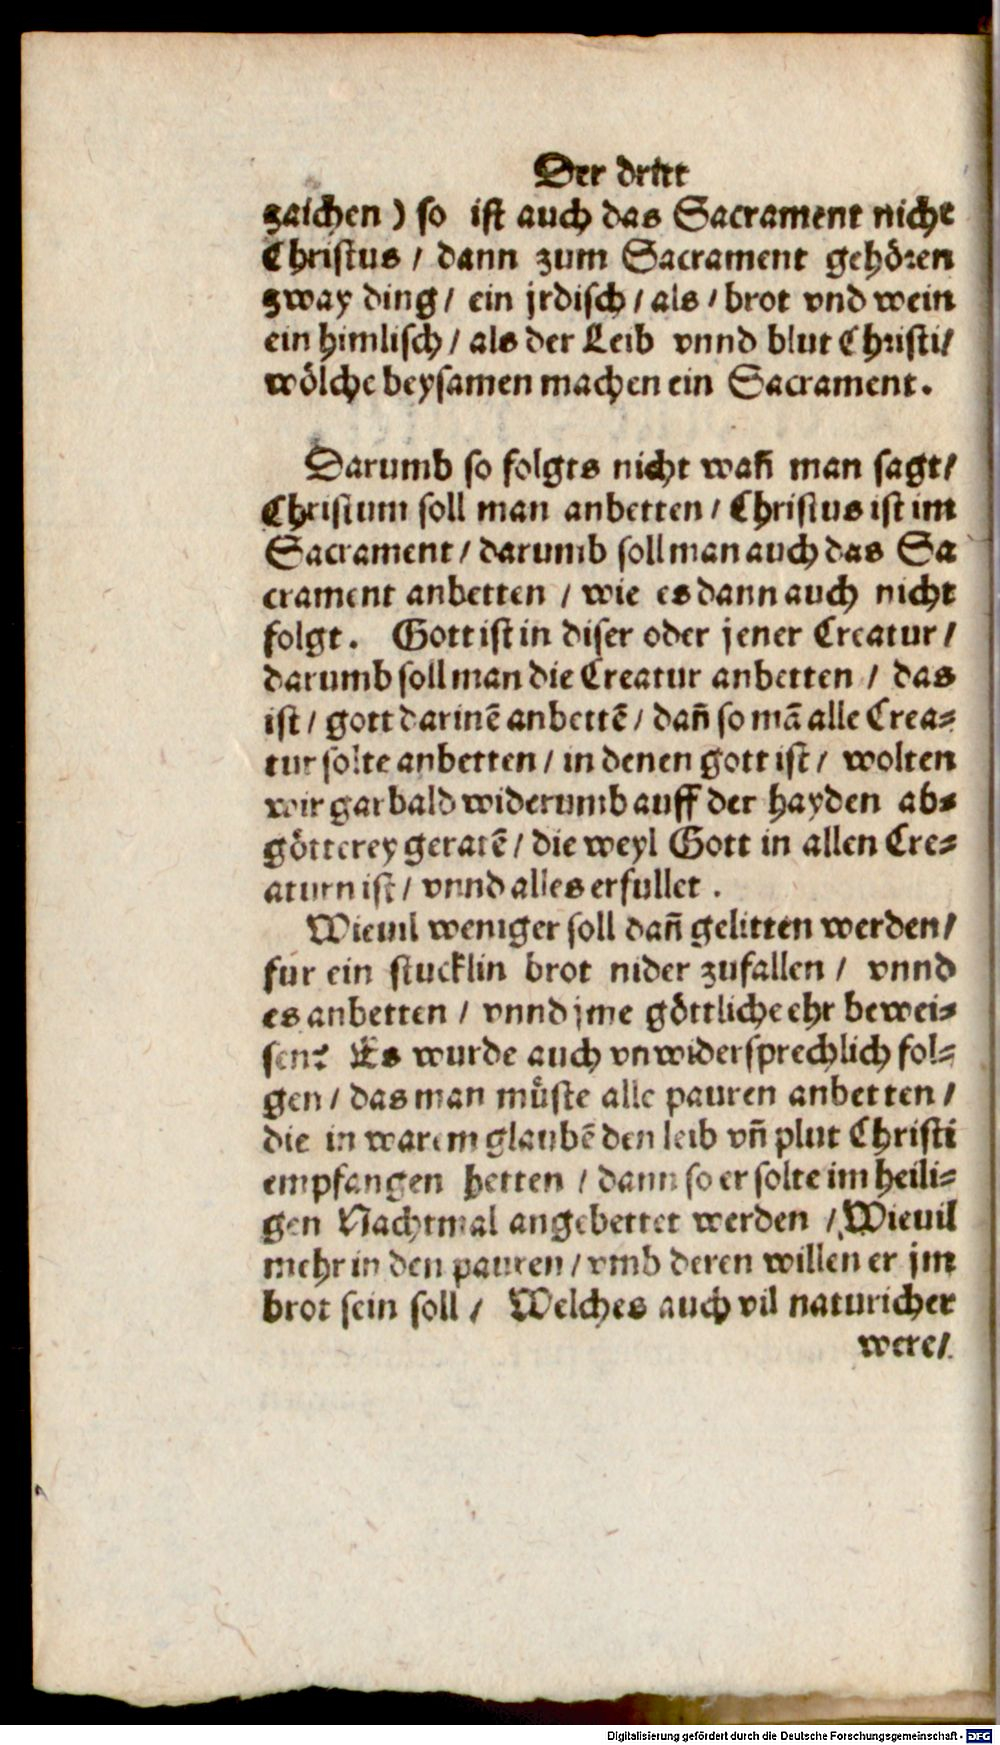 Der dritt
zaichen) so ist auch das Sacrament nicht
Christus / dann zum Sacrament gehören
zway ding / ein jrdisch / als / brot vnd wein
ein himlisch / als der Leib vnnd blut Christi /
wölche beysamen machen ein Sacrament.
Darumb so folgts nicht wañ man sagt /
Christum soll man anbetten / Christus ist im
Sacrament / darumb soll man auch das Sa
crament anbetten / wie es dann auch nicht
folgt. Gott ist in diser oder jener Creatur /
darumb soll man die Creatur anbetten / das
ist / gott darinē anbettē / dañ so mā alle Crea⸗
tur solte anbetten / in denen gott ist / wolten
wir gar bald widerumb auff der hayden ab⸗
götterey geratē / die weyl Gott in allen Cre⸗
aturn ist / vnnd alles erfullet.
Wieuil weniger soll dañ gelitten werden /
für ein stucklin brot nider zufallen / vnnd
es anbetten / vnnd jme göttliche ehr bewei⸗
sen? Es wurde auch vnwidersprechlich fol⸗
gen / das man müste alle pauren anbetten /
die in warem glaubē den leib vñ plut Christi
empfangen hetten / dann so er solte im heili⸗
gen Nachtmal angebettet werden / Wieuil
mehr in den pauren / vmb deren willen er jm
brot sein soll / Welches auch vil naturicher
were /
Digitalisierung gefördert durch die Deutsche Forschungsgemeinschaft - DFG